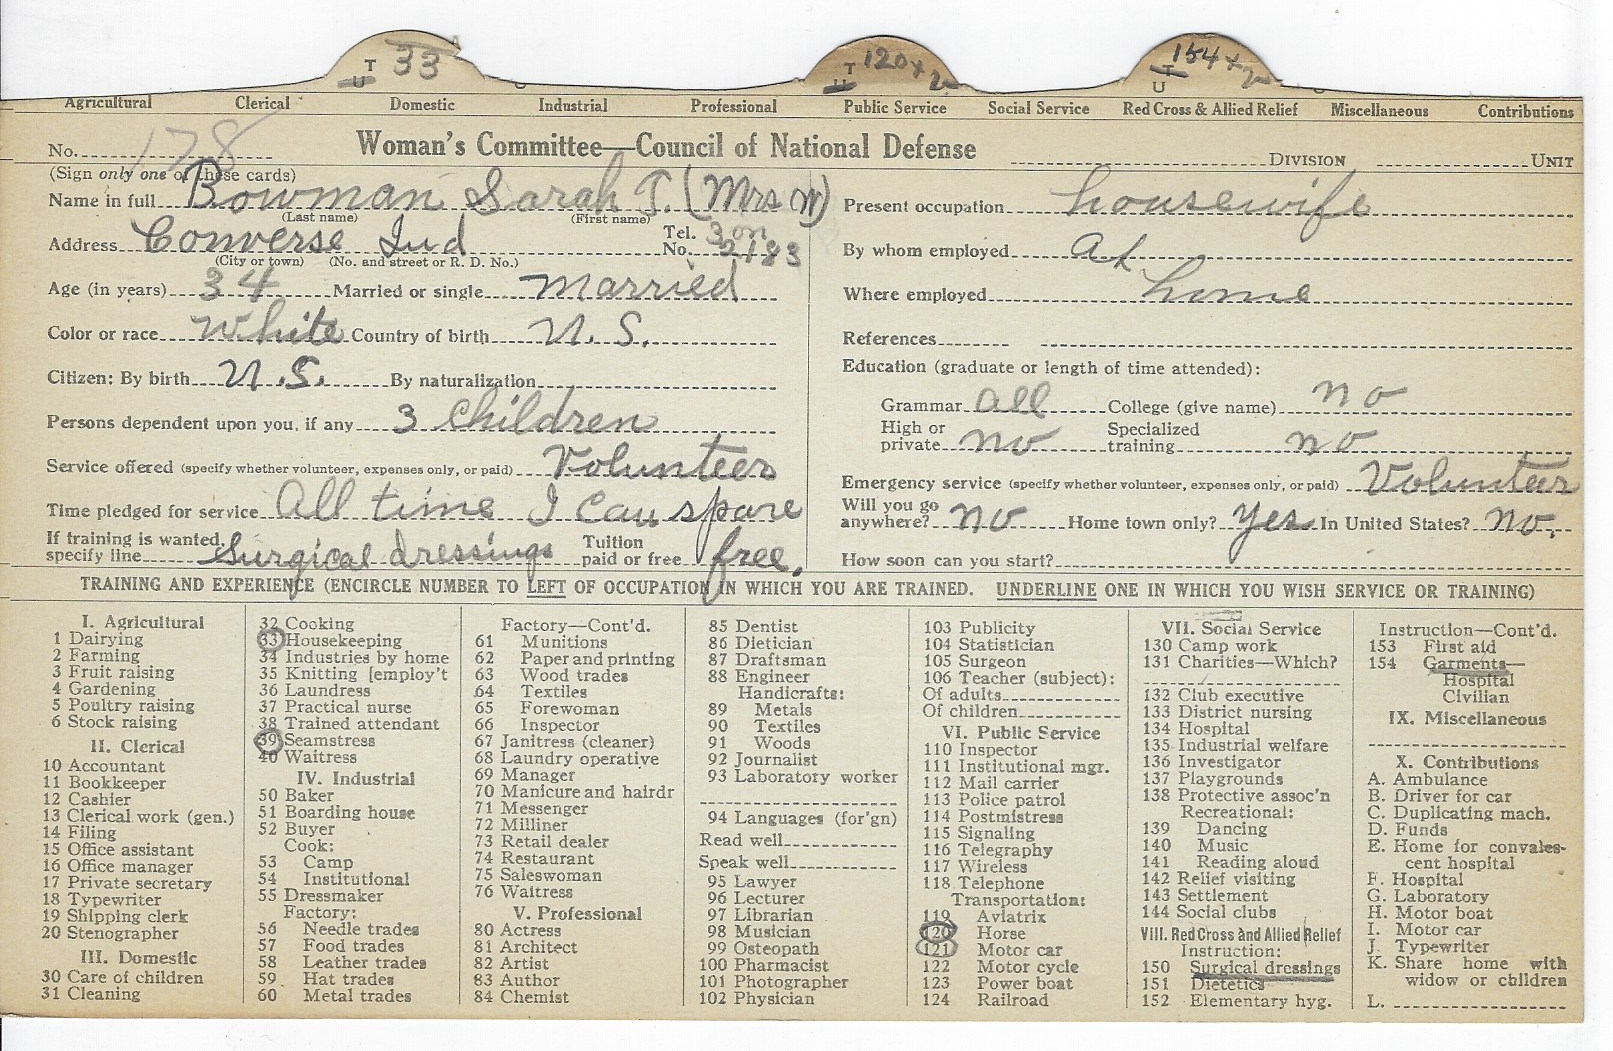 T U 33 T U 120+2 T U 154+2
Agricultural Clerical Domestic Industrial Professional Public Service Social Service Red Cross & Allied Relief Miscellaneous Contributions
No. 178 Woman's Committee—Council of National Defense DIVISION UNIT
(Sign only one of these cards)
Name in full Bowman Sarah T. (Mrs W)
(Last name) (First name)
Address Converse Ind Tel. No. 3 on 2183
(City or town) (No. and street or R. D. No.)
Age (in years) 34 Married or single married
Color or race White Country of birth U. S.
Citizen: By birth U.S. By naturalization
Persons dependent upon you, if any 3 children
Service offered (specify whether volunteer, expenses only, or paid) Volunteer
Time pledged for service All time I can spare
If training is wanted, specify line Surgical dressings Tuition paid or free free.
Present occupation housewife
By whom employed At
Where employed home
References
Education (graduate or length of time attended):
Grammar all College (give name) no
High or private no Specialized training no
Emergency service (specify whether volunteer, expenses only, or paid) Volunteer
Will you go anywhere? no Home town only? Yes In United States? no.
How soon can you start?
TRAINING AND EXPERIENCE (ENCIRCLE NUMBER TO LEFT OF OCCUPATION IN WHICH YOU ARE TRAINED. UNDERLINE ONE IN WHICH YOU WISH SERVICE OR TRAINING)
I. Agricultural
1 Dairying
2 Farming
3 Fruit raising
4 Gardening
5 Poultry raising
6 Stock raising
II. Clerical
10 Accountant
11 Bookkeeper
12 Cashier
13 Clerical work (gen.)
14 Filing
15 Office assistant
16 Office manager
17 Private secretary
18 Typewriter
19 Shipping clerk
20 Stenographer
III. Domestic
30 Care of children
31 Cleaning
32 Cooking
33 Housekeeping
34 Industries by home
35 Knitting [employ't
36 Laundress
37 Practical nurse
38 Trained attendant
39 Seamstress
40 Waitress
IV. Industrial
50 Baker
51 Boarding house
52 Buyer
Cook:
53 Camp
54 Institutional
55 Dressmaker
Factory:
56 Needle trades
57 Food trades
58 Leather trades
59 Hat trades
60 Metal trades
Factory—Cont'd.
61 Munitions
62 Paper and printing
63 Wood trades
64 Textiles
65 Forewoman
66 Inspector
67 Janitress (cleaner)
68 Laundry operative
69 Manager
70 Manicure and hairdr
71 Messenger
72 Milliner
73 Retail dealer
74 Restaurant
75 Saleswoman
76 Waitress
V. Professional
80 Actress
81 Architect
82 Artist
83 Author
84 Chemist
85 Dentist
86 Dietician
87 Draftsman
88 Engineer
Handicrafts:
89 Metals
90 Textiles
91 Woods
92 Journalist
93 Laboratory worker
94 Languages (for'gn)
Read well
Speak well
95 Lawyer
96 Lecturer
97 Librarian
98 Musician
99 Osteopath
100 Pharmacist
101 Photographer
102 Physician
103 Publicity
104 Statistician
105 Surgeon
106 Teacher (subject):
Of adults
Of children
VI. Public Service
110 Inspector
111 Institutional mgr.
112 Mail carrier
113 Police patrol
114 Postmistress
115 Signaling
116 Telegraphy
117 Wireless
118 Telephone
Transportation:
119 Aviatrix
120 Horse
121 Motor car
122 Motor cycle
123 Power boat
124 Railroad
VII. Social Service
130 Camp work
131 Charities—Which?
132 Club executive
133 District nursing
134 Hospital
135 Industrial welfare
136 Investigator
137 Playgrounds
138 Protective assoc'n
Recreational:
139 Dancing
140 Music
141 Reading aloud
142 Relief visiting
143 Settlement
144 Social clubs
VIII. Red Cross and Allied Relief
Instruction:
150 Surgical dressings
151 Dietetics
152 Elementary hyg.
Instruction—Cont'd.
153 First aid
154 Garments—
Hospital
Civilian
IX. Miscellaneous
X. Contributions
A. Ambulance
B. Driver for car
C. Duplicating mach.
D. Funds
E. Home for convales-
cent hospital
F. Hospital
G. Laboratory
H. Motor boat
I. Motor car
J. Typewriter
K. Share home with
widow or children
L.